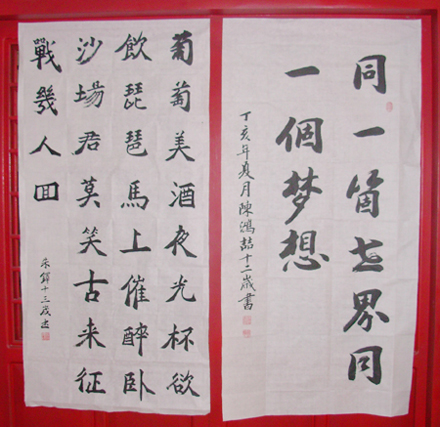 同一箇世界同
一個梦想
丁亥年夏月陳鴻喆十二歲書
葡萄美酒夜光杯欲
飲琵琶馬上催醉卧
沙場君莫笑古来征
戰幾人回
十三歲書